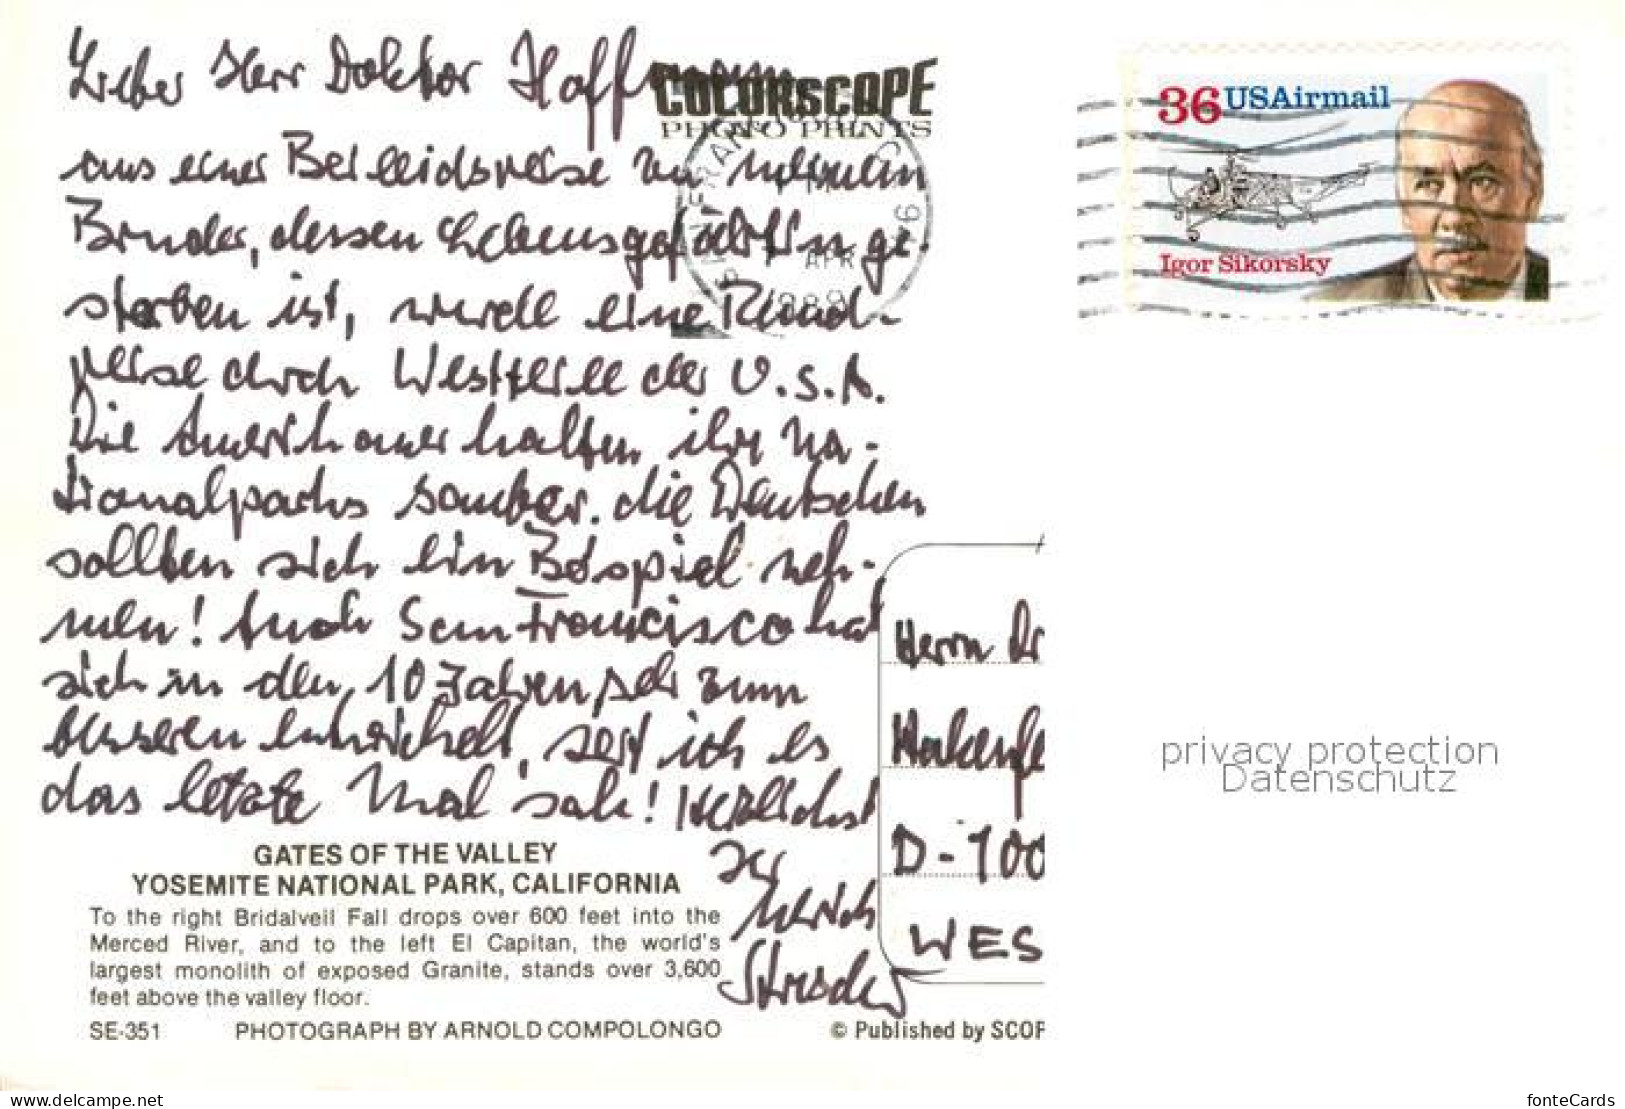 Lieber Herr Doktor Hoffmann
COLORSCOPE
PHOTO PRINTS
aus einer Beileidsreise zu meinem
Bruder, dessen Lebensgefährtin ge-
storben ist, wurde eine Rund-
reise durch Westteile der U.S.A.
Die Amerikaner halten ihre Na-
tionalparks sauber. die Deutschen
sollten sich ein Beispiel neh-
men! Auch San Francisco hat
sich in den 10 Jahren, sehr zum
besseren entwickelt, seit ich es
das letzte Mal sah! Herzlichst
Ihr
Ulrich
GATES OF THE VALLEY
YOSEMITE NATIONAL PARK, CALIFORNIA
To the right Bridalveil Fall drops over 600 feet into the
Merced River, and to the left El Capitan, the world's
largest monolith of exposed Granite, stands over 3,600
feet above the valley floor.
SE-351 PHOTOGRAPH BY ARNOLD COMPOLONGO
© Published by SCOP
36 USAirmail
Igor Sikorsky
APR
Herrn Dr
D-100
WES
privacy protection
Datenschutz
www.delcampe.net
fonteCards